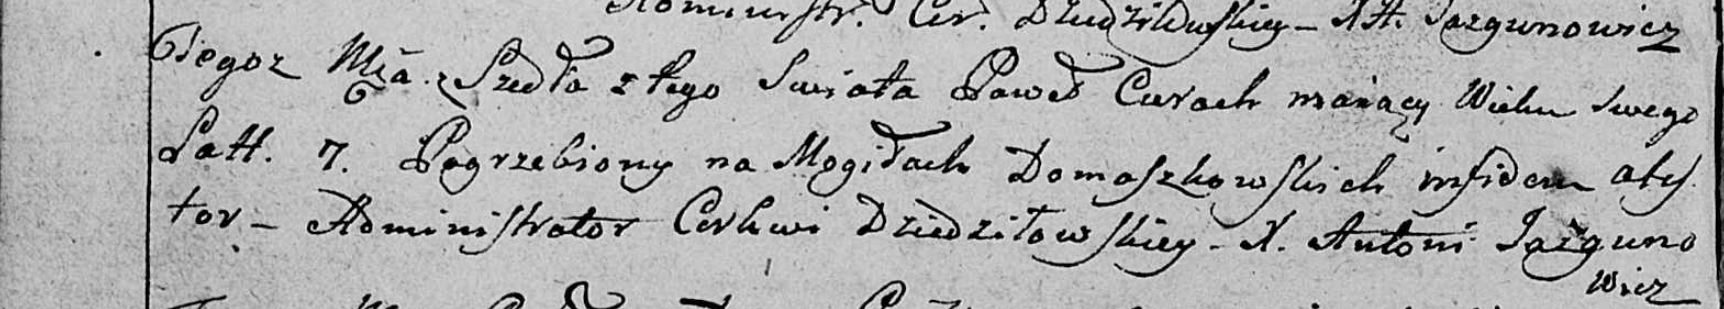 Administr. Cer. Dziedziłowskiey – X A. Jazgunowicz
Tegoż Mca. Szedła z tego Swiata Paweł Curach maiący Wieku swego
Latt. 7. Pogrzebiony na Mogiłach Domaszkowskich infidem ates
tor – Administrator Cerkwi Dziedziłowskiey – X. Antoni Jazguno
wicz